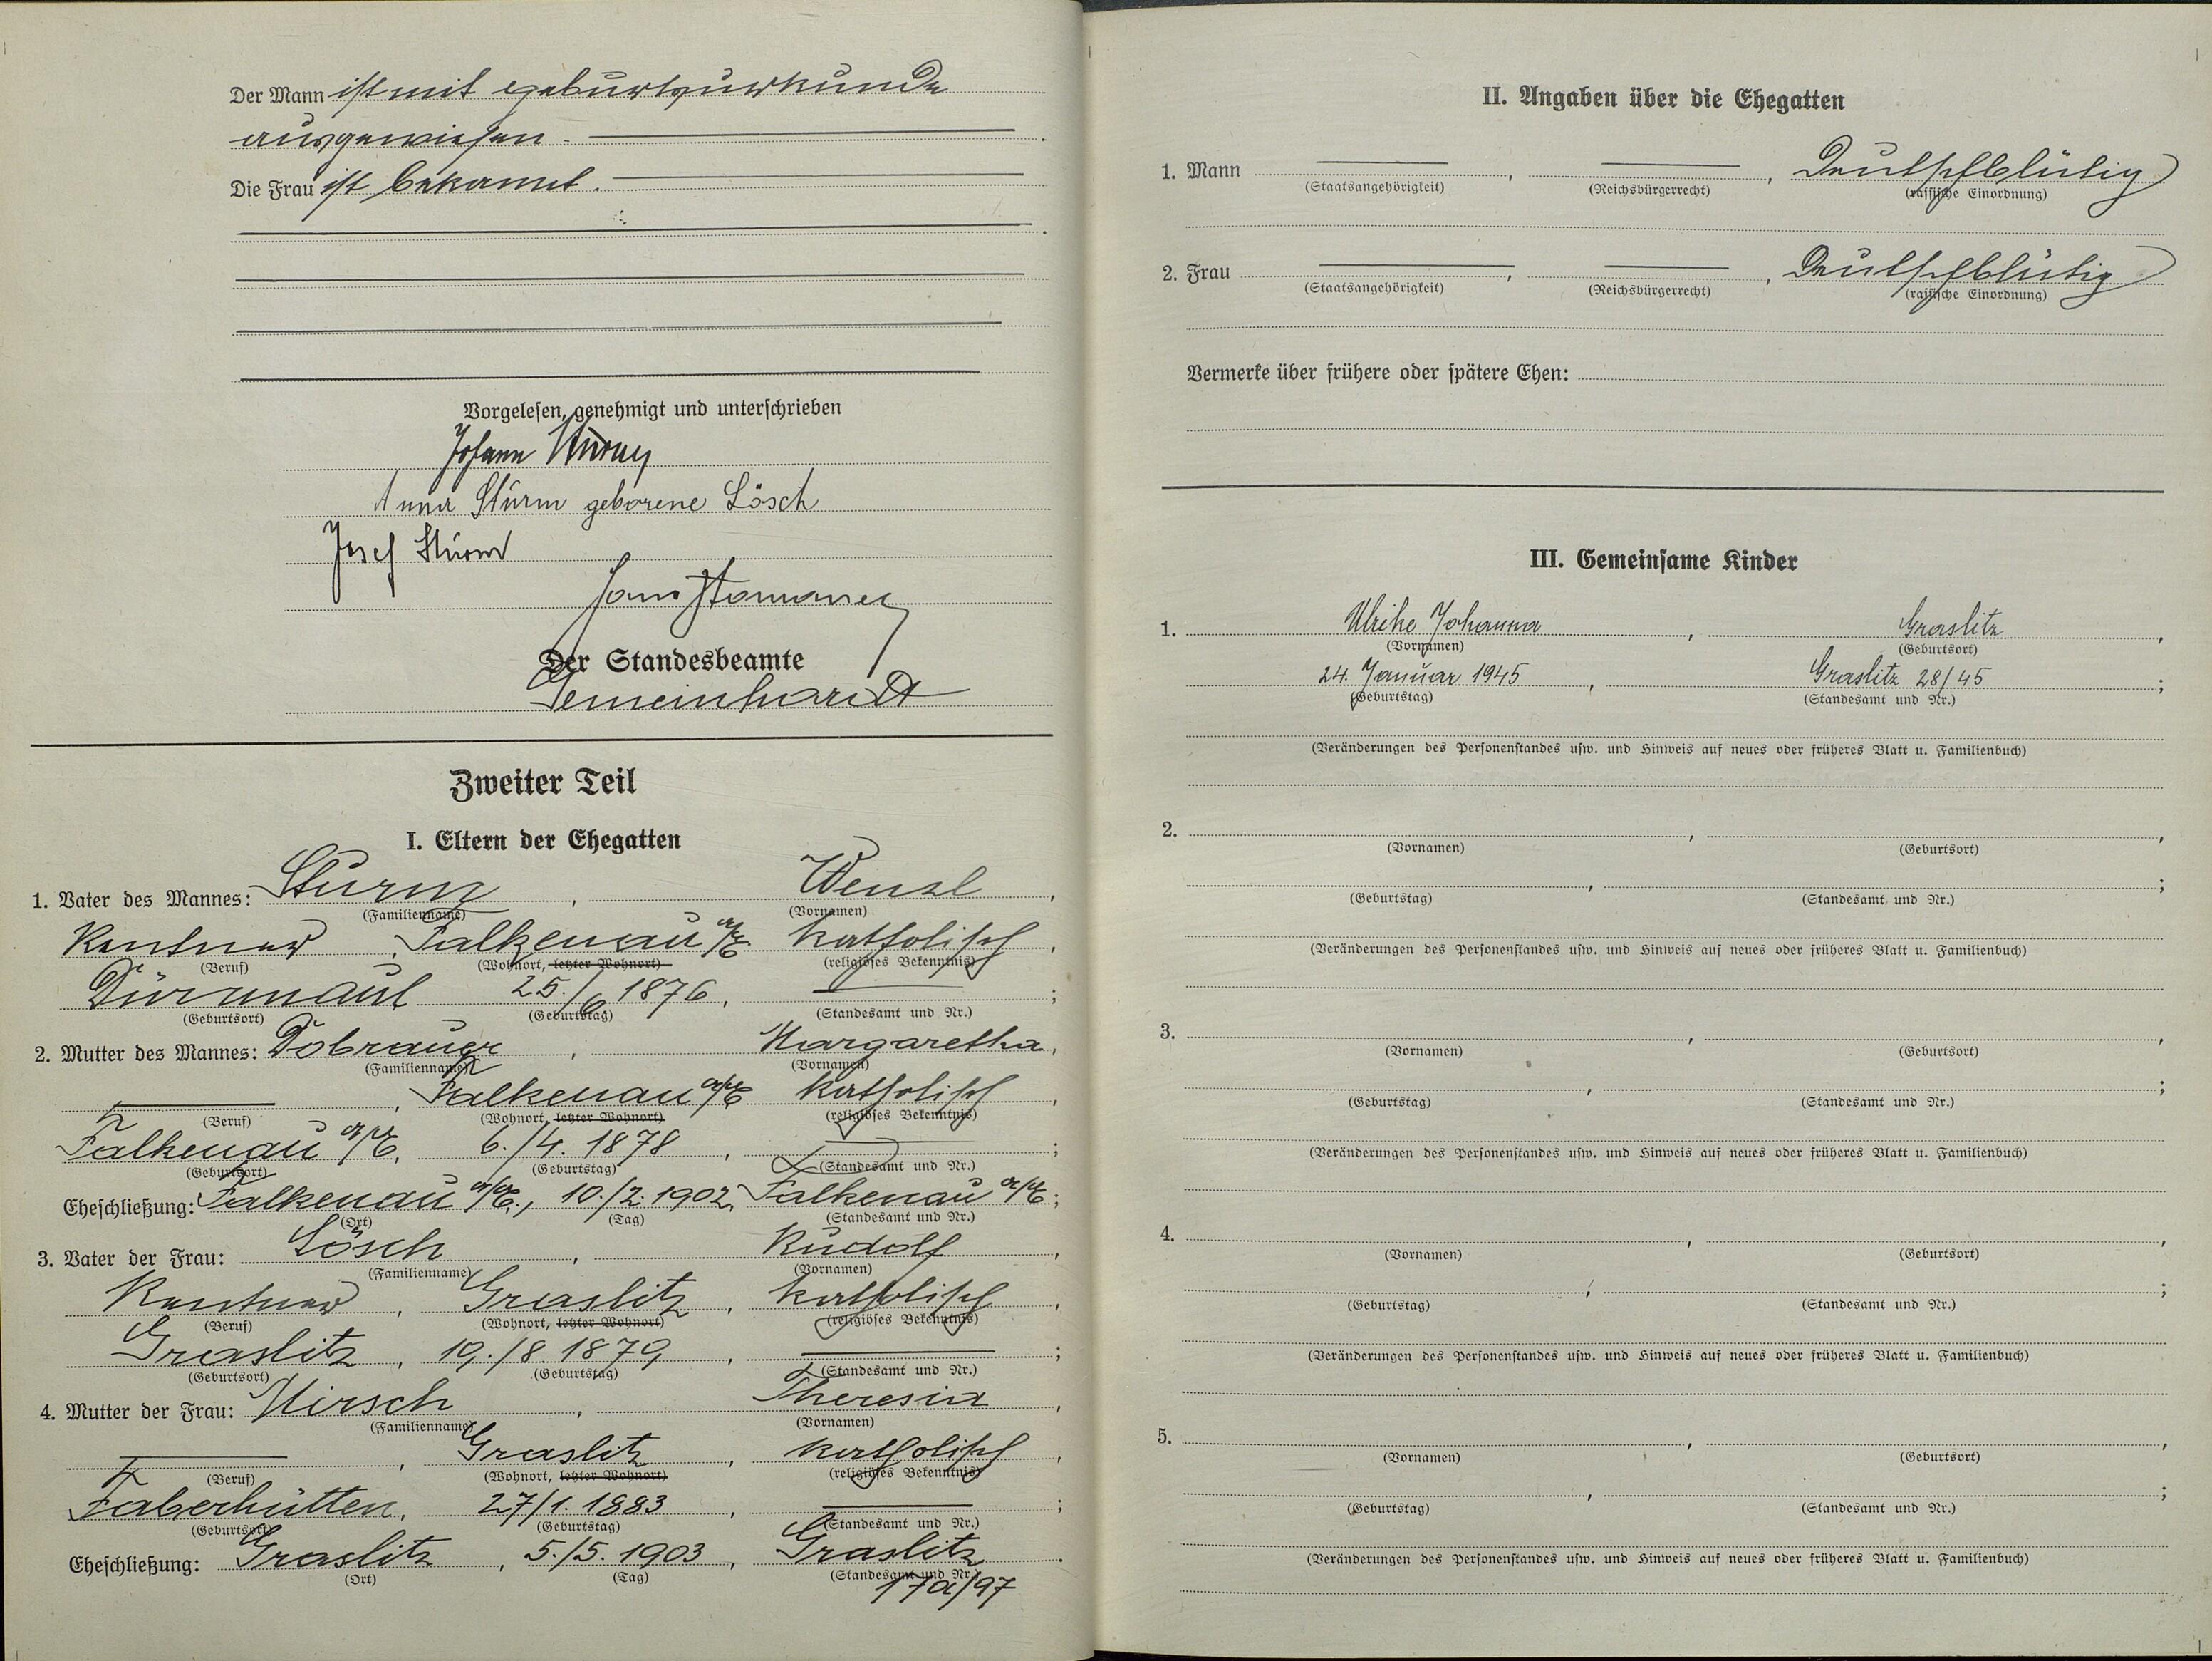 Der Mann ist mit Geburtsurkunde
ausgewiesen.
Die Frau ist bekannt.
Vorgelesen, genehmigt und unterschrieben
Johann Sturm
Anna Sturm geborene Lösch
Josef Sturm
Der Standesbeamte
Gemeinhardt
Zweiter Teil
I. Eltern der Ehegatten
1. Vater des Mannes: Sturm, Wenzl,
(Familienname) (Vornamen)
Rentner, Falkenau a/E katholisch,
(Beruf) (Wohnort, letzter Wohnort) (religiöses Bekenntnis)
Dürrmaul 25./6 1876, ;
(Geburtsort) (Geburtstag) (Standesamt und Nr.)
2. Mutter des Mannes: Dobrauer, Margaretha,
(Familienname) (Vornamen)
, Falkenau a/E katholisch,
(Beruf) (Wohnort, letzter Wohnort) (religiöses Bekenntnis)
Falkenau a/E, 6./4. 1878, ;
(Geburtsort) (Geburtstag) (Standesamt und Nr.)
Eheschließung: Falkenau a/E., 10./2. 1902, Falkenau a/E;
(Ort) (Tag) (Standesamt und Nr.)
3. Vater der Frau: Lösch, Rudolf,
(Familienname) (Vornamen)
Rentner, Graslitz, katholisch,
(Beruf) (Wohnort, letzter Wohnort) (religiöses Bekenntnis)
Graslitz, 19./8. 1879, ;
(Geburtsort) (Geburtstag) (Standesamt und Nr.)
4. Mutter der Frau: Hirsch, Theresia,
(Familienname) (Vornamen)
, Graslitz, katholisch,
(Beruf) (Wohnort, letzter Wohnort) (religiöses Bekenntnis)
Faberhütten, 27/1. 1883, ;
(Geburtsort) (Geburtstag) (Standesamt und Nr.)
Eheschließung: Graslitz, 5./5. 1903, Graslitz.
(Ort) (Tag) (Standesamt und Nr.)
17a/97
II. Angaben über die Ehegatten
1. Mann , , Deutschblütig
(Staatsangehörigkeit) (Reichsbürgerrecht) (rassische Einordnung)
2. Frau , , Deutschblütig
(Staatsangehörigkeit) (Reichsbürgerrecht) (rassische Einordnung)
Vermerke über frühere oder spätere Ehen:
III. Gemeinsame Kinder
1. Ulrike Johanna, Graslitz,
(Vornamen) (Geburtsort)
24. Januar 1945, Graslitz 28/45;
(Geburtstag) (Standesamt und Nr.)
(Veränderungen des Personenstandes usw. und Hinweis auf neues oder früheres Blatt u. Familienbuch)
2. , ,
(Vornamen) (Geburtsort)
, ;
(Geburtstag) (Standesamt und Nr.)
(Veränderungen des Personenstandes usw. und Hinweis auf neues oder früheres Blatt u. Familienbuch)
3. , ,
(Vornamen) (Geburtsort)
, ;
(Geburtstag) (Standesamt und Nr.)
(Veränderungen des Personenstandes usw. und Hinweis auf neues oder früheres Blatt u. Familienbuch)
4. , ,
(Vornamen) (Geburtsort)
, ;
(Geburtstag) (Standesamt und Nr.)
(Veränderungen des Personenstandes usw. und Hinweis auf neues oder früheres Blatt u. Familienbuch)
5. , ,
(Vornamen) (Geburtsort)
, ;
(Geburtstag) (Standesamt und Nr.)
(Veränderungen des Personenstandes usw. und Hinweis auf neues oder früheres Blatt u. Familienbuch)